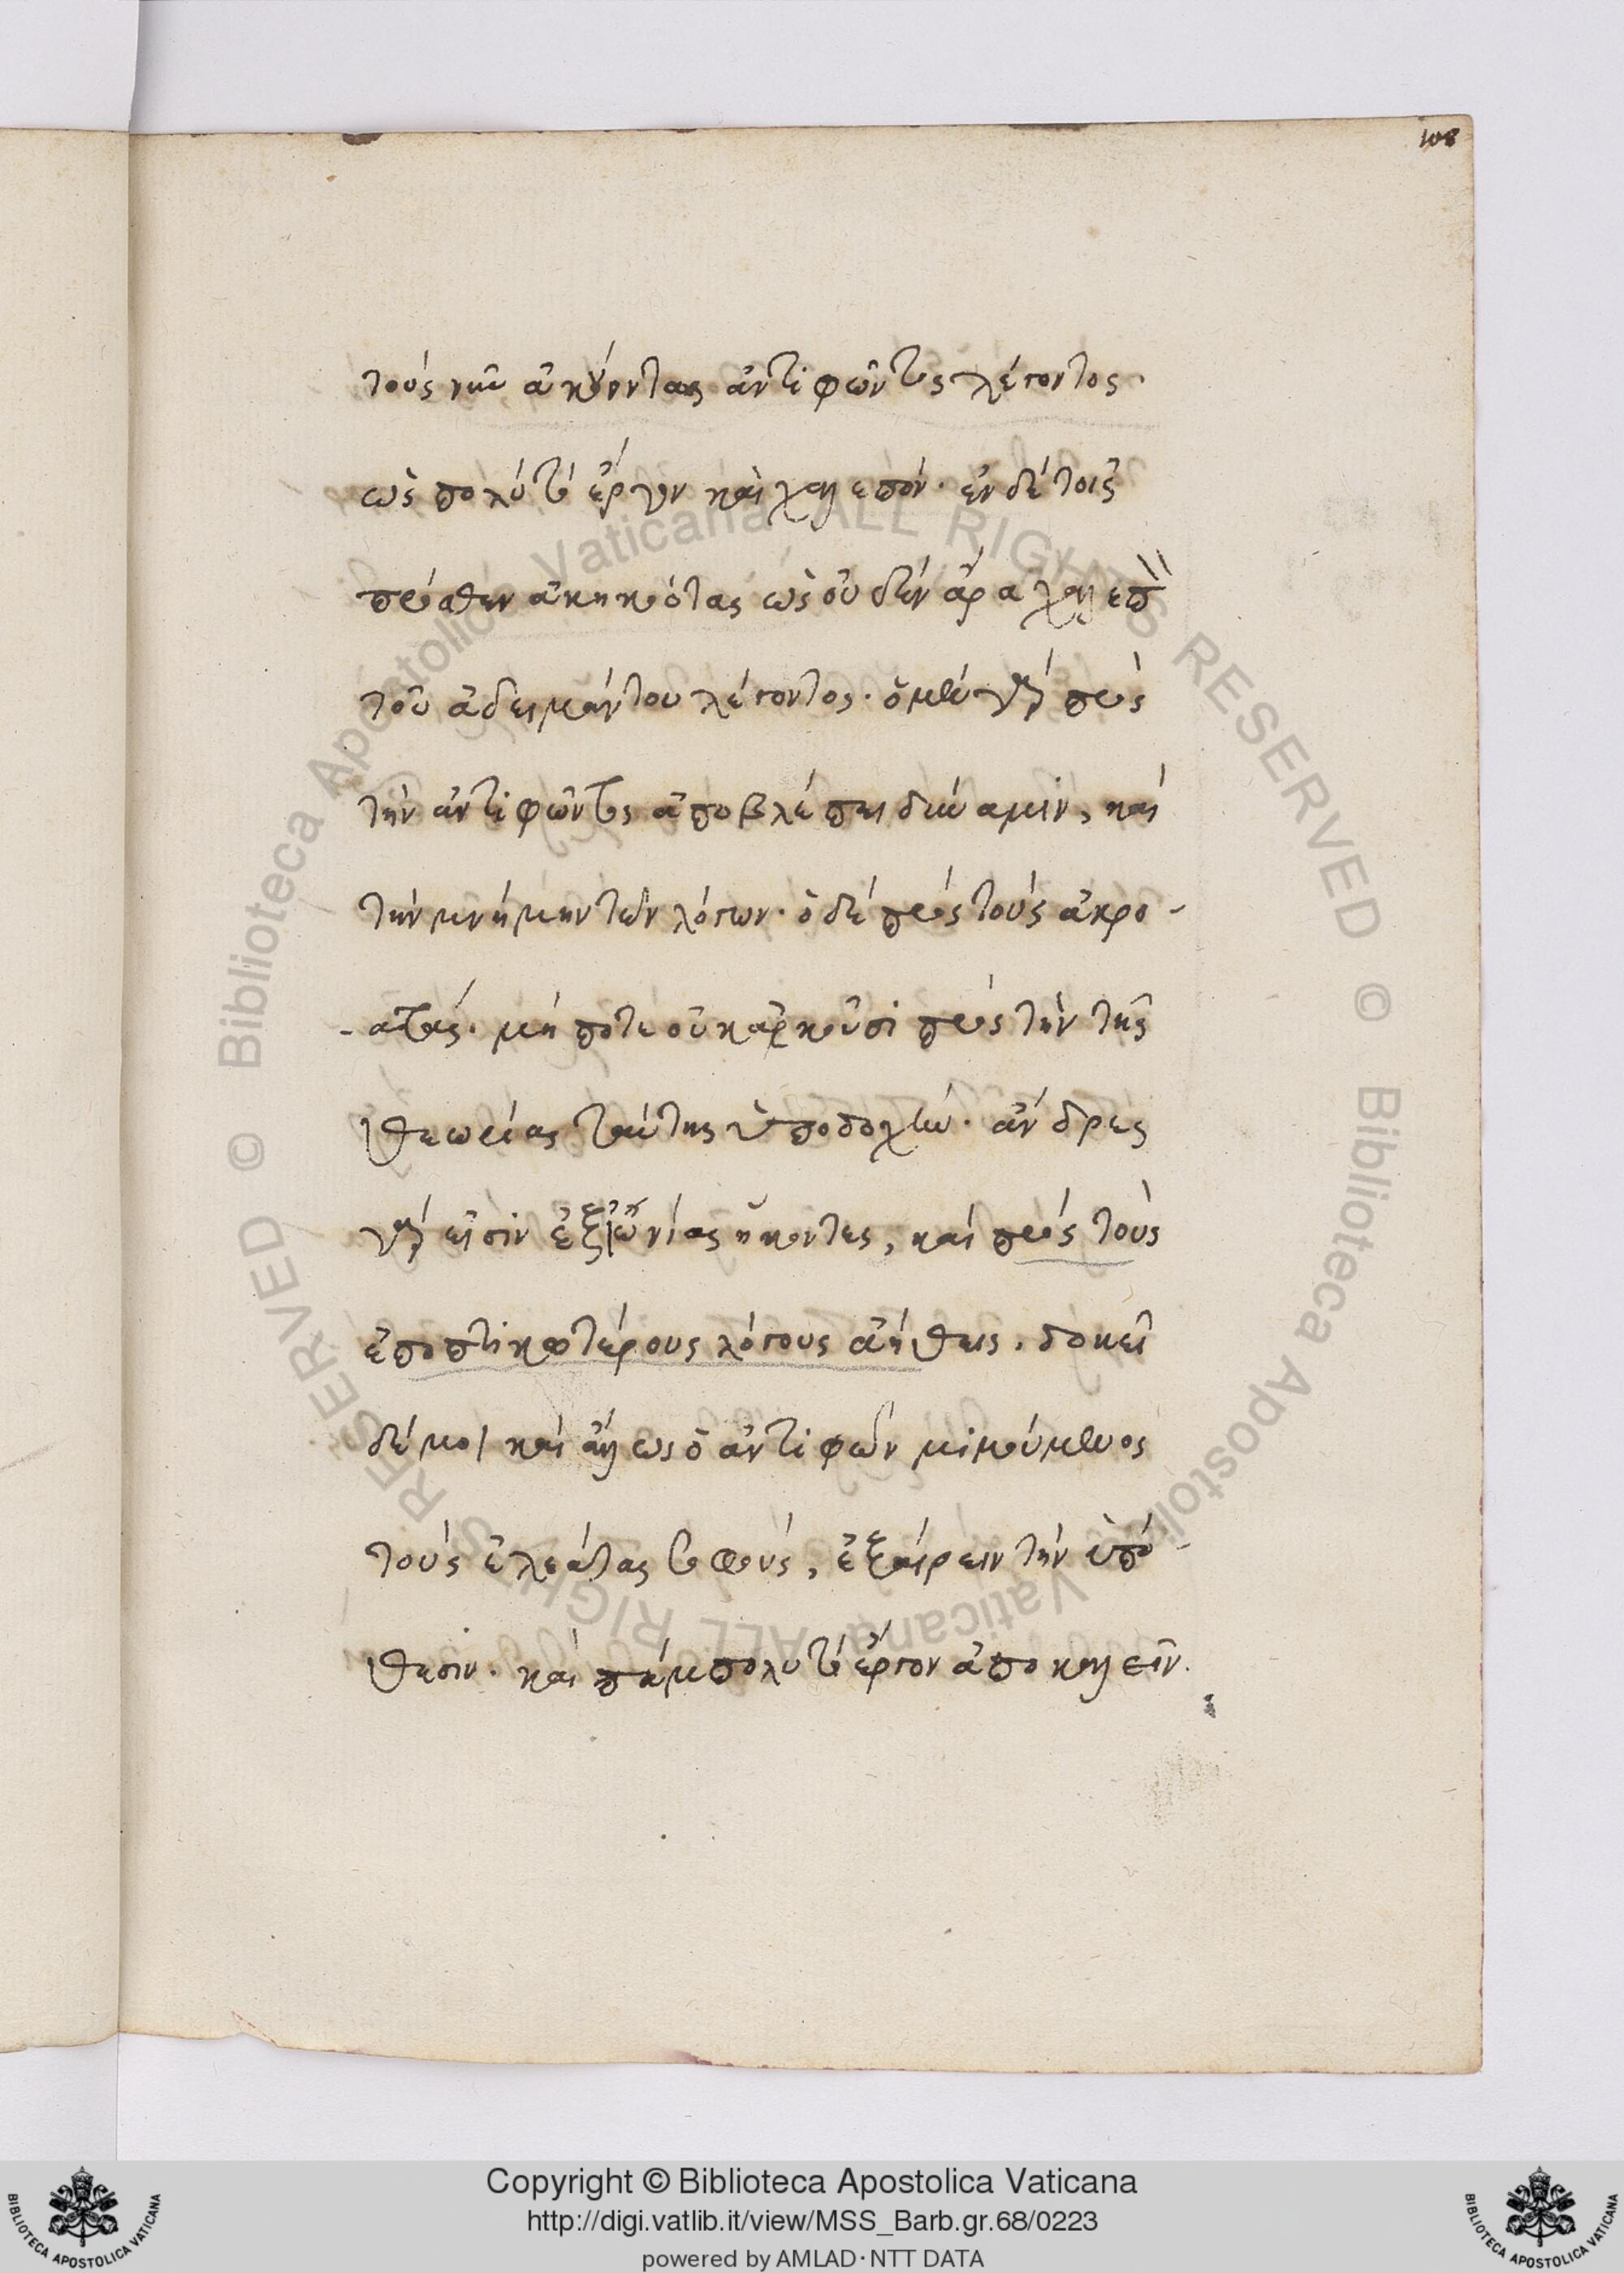 108
τοὺς νῦν ἀκούοντας ἀντιφῶντος λέγοντος·
ὡς πολύ τὸ ἔργον καὶ χαλεπόν· ἐν δὲ τοῖς
πρόσθεν ἀκηκοότας ὡς οὐδὲν ἄρα χαλεπὸν
τοῦ ἀδειμάντου λέγοντος· ὁ μὲν γὰρ πρὸς
τὴν ἀντιφῶντος ἀποβλέπει δύναμιν, καὶ
τὴν μνήμην τῶν λόγων· ὁ δὲ πρὸς τοὺς ἀκρο-
-ατάς· μή ποτε οὐκ ἀρκοῦσι πρὸς τὴν τῆς
θεωρίας ταύτης ὑποδοχήν· ἄνδρες
γὰρ εἰσὶν ἐξ ἰωνίας ἥκοντες, καὶ πρὸς τοὺς
ἐποπτικωτέρους λόγους ἀήθεις. δοκεῖ
δέ μοι καὶ ἄλλως ὁ ἀντιφῶν μιμούμενος
τοὺς ἐλεάτας σοφούς, ἐξαίρειν τὴν ὑπό-
θεσιν· καὶ πάμπολυ τὸ ἔργον ἀποκαλεῖν.
© Biblioteca Apostolica Vaticana ALL RIGHTS RESERVED
© Biblioteca Apostolica Vaticana ALL RIGHTS RESERVED
Copyright © Biblioteca Apostolica Vaticana
http://digi.vatlib.it/view/MSS_Barb.gr.68/0223
powered by AMLAD·NTT DATA
BIBLIOTECA APOSTOLICA VATICANA
BIBLIOTECA APOSTOLICA VATICANA